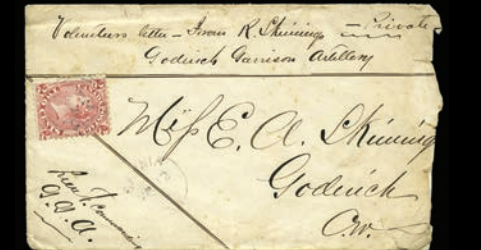 Volunteers letter – From R. Skimings – Private
Goderich Garrison Artillery
Miss E. A. Skimings
Goderich
C.W.
Lieu t. Commanding
G. G. A.